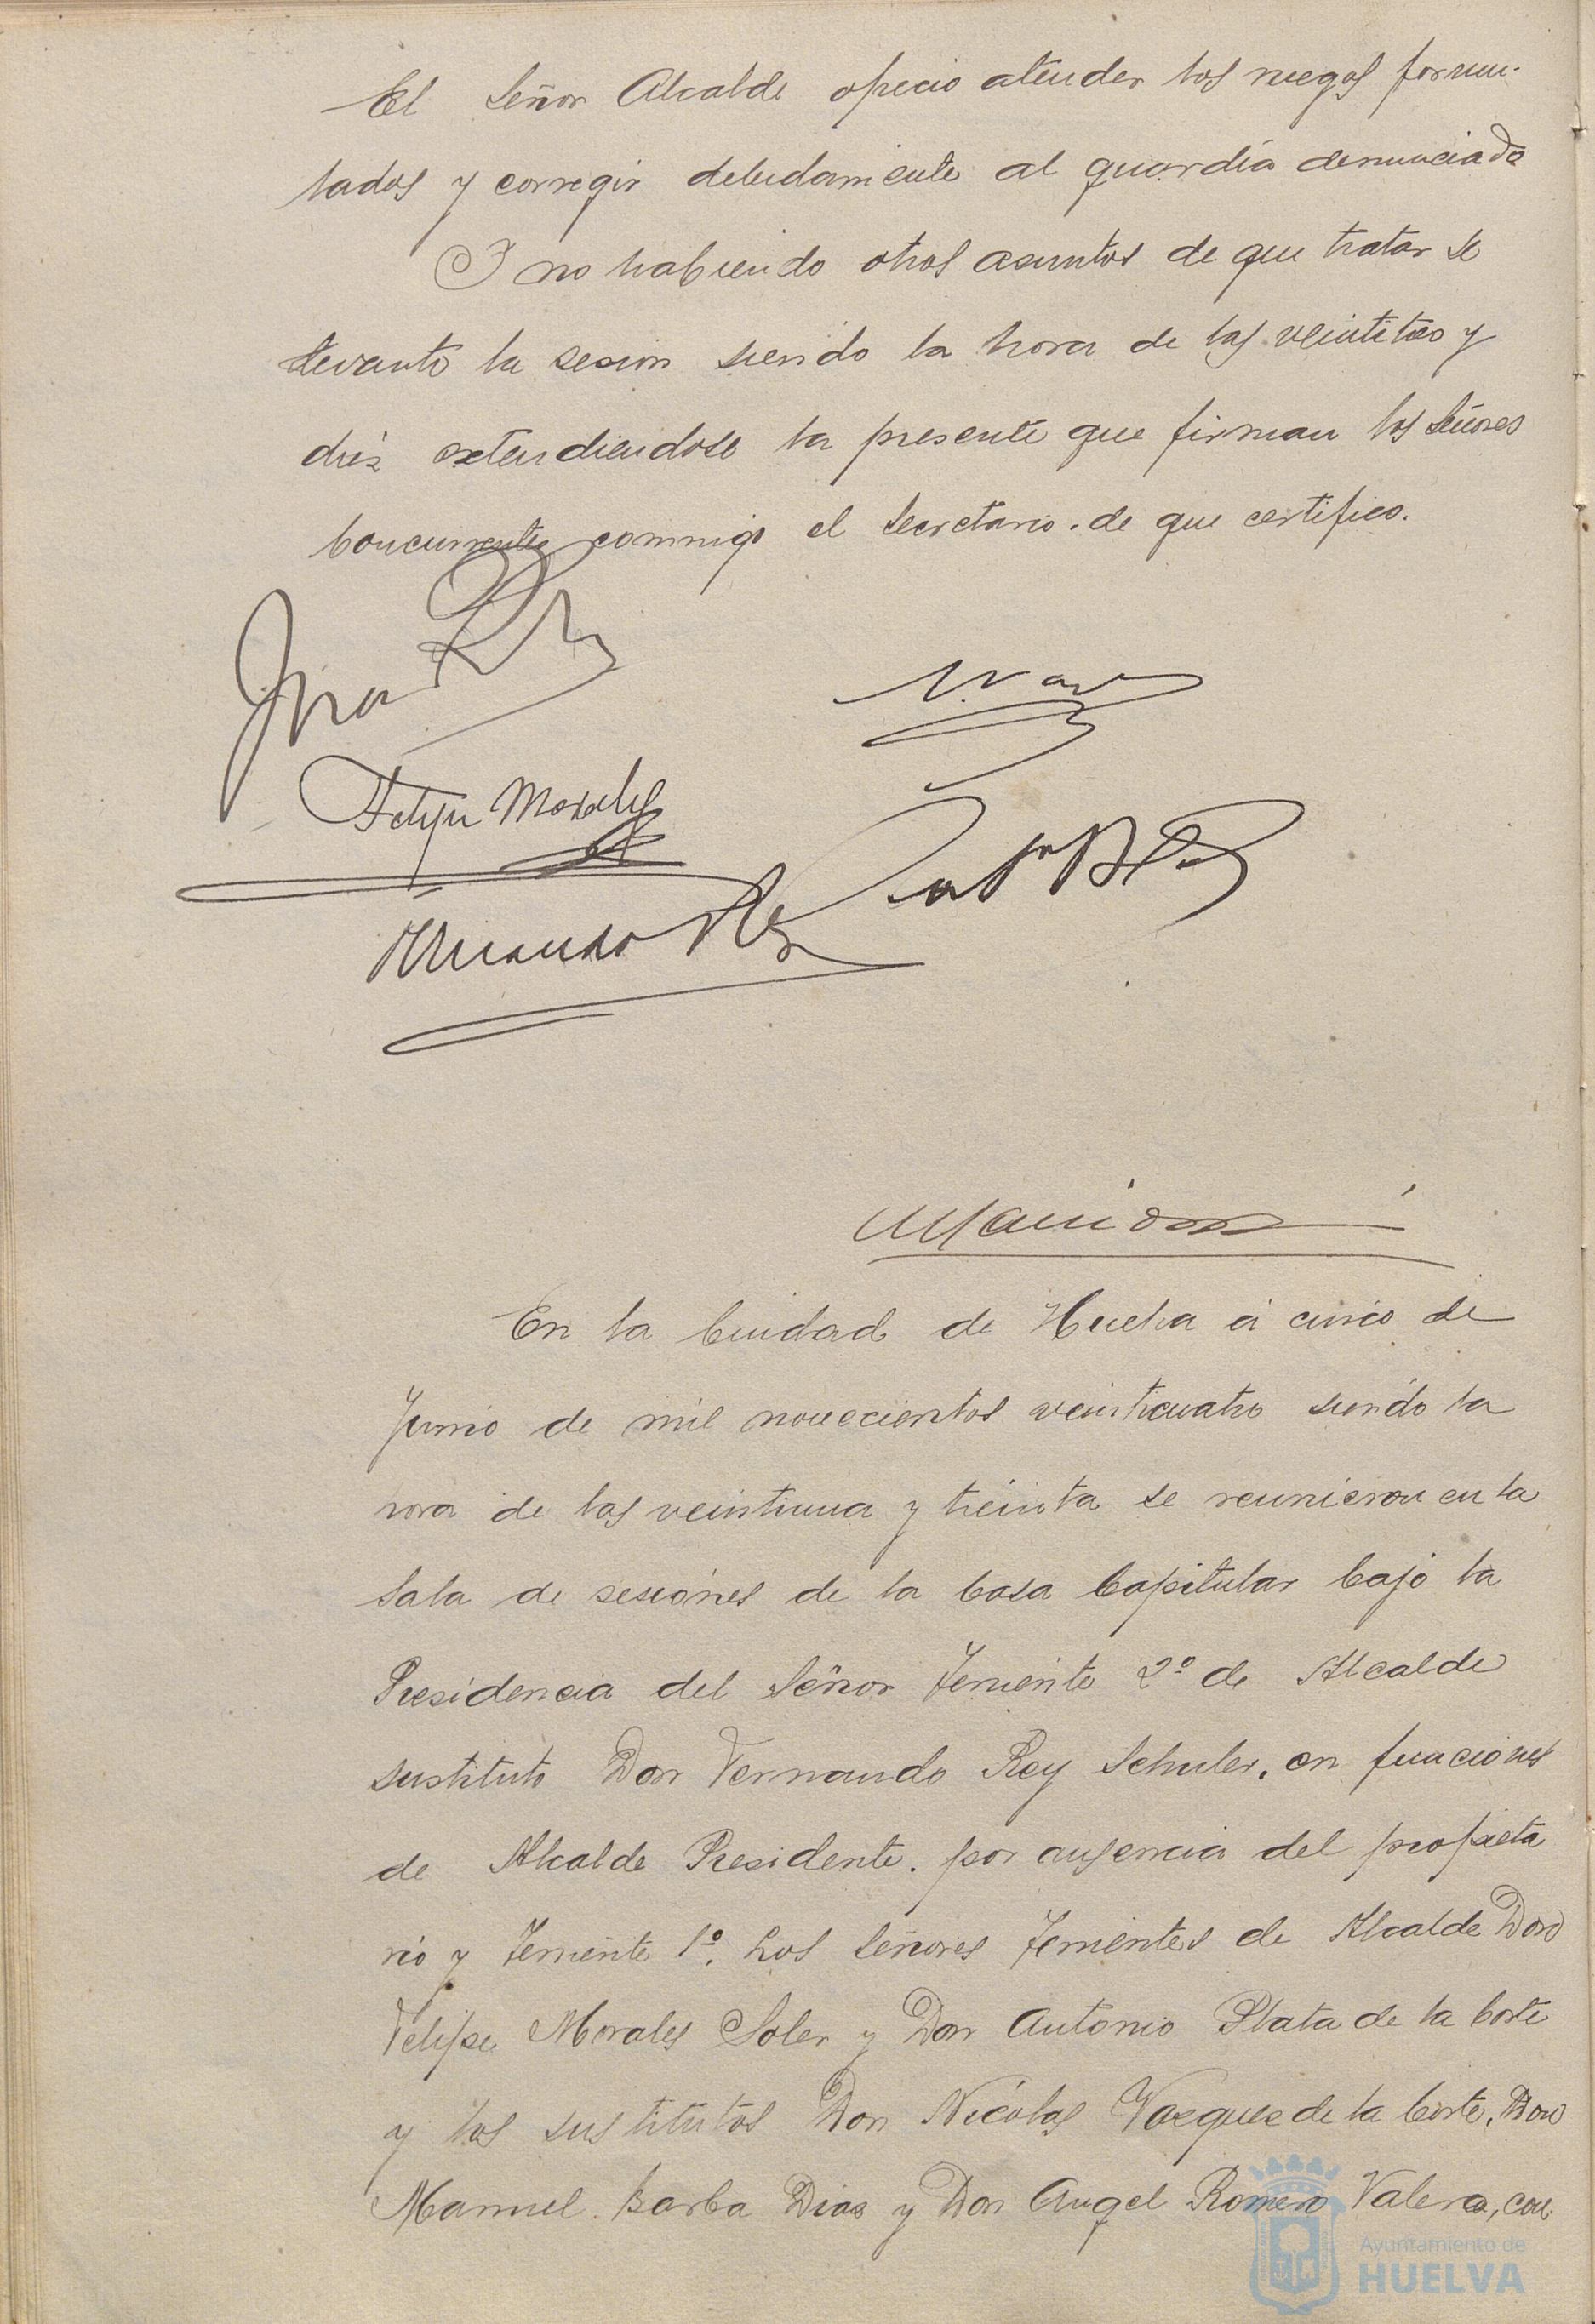 El Señor Alcalde ofrecio atender los ruegos formu-
lados y corregir debidamente al guardia denunciado
Y no habiendo otros asuntos de que tratar se
levanto la sesion siendo la hora de las veintitres y
diez extendiendose la presente que firman los Señores
Concurrentes conmigo el Secretario. de que certifico.
Felipe Morales
Fernando Rey
En la Ciudad de Huelva á cinco de
Junio de mil novecientos veinticuatro siendo la
hora de las veintiuna y treinta se reunieron en la
Sala de sesiones de la Casa Capitular bajo la
Presidencia del Señor Teniente 2º de Alcalde
sustituto Don Fernando Rey Schuler, en funciones
de Alcalde Presidente. por ausencia del propieta
rio y Teniente 1º. Los Señores Tenientes de Alcalde Don
Felipe Morales Soler y Don Antonio Plata de la Corte
y los sustitutos Don Nicolas Vazquez de la Corte, Don
Manuel Barba Dias y Don Angel Romero Valera, con
Ayuntamiento de
HUELVA